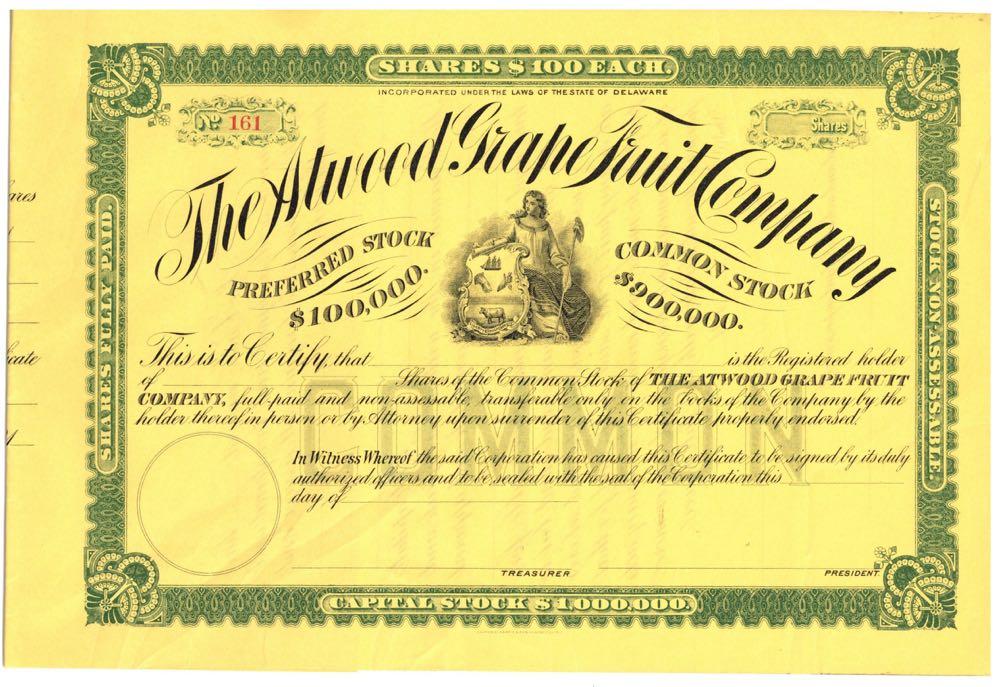 SHARES $100 EACH.
INCORPORATED UNDER THE LAWS OF THE STATE OF DELAWARE
No 161
Shares
The Atwood Grape Fruit Company
PREFERRED STOCK
$100,000.
COMMON STOCK
$900,000.
SHARES FULLY PAID.
STOCK NON-ASSESSABLE.
ares
icate
This is to Certify, that is the Registered holder
of Shares of the Common Stock of THE ATWOOD GRAPE FRUIT
COMPANY, full-paid and non-assessable, transferable only on the books of the Company by the
holder thereof in person or by Attorney upon surrender of this Certificate properly endorsed.
COMMON
In Witness Whereof the said Corporation has caused this Certificate to be signed by its duly
authorized officers and to be sealed with the seal of the Corporation this
day of
TREASURER
PRESIDENT.
CAPITAL STOCK $1,000,000.